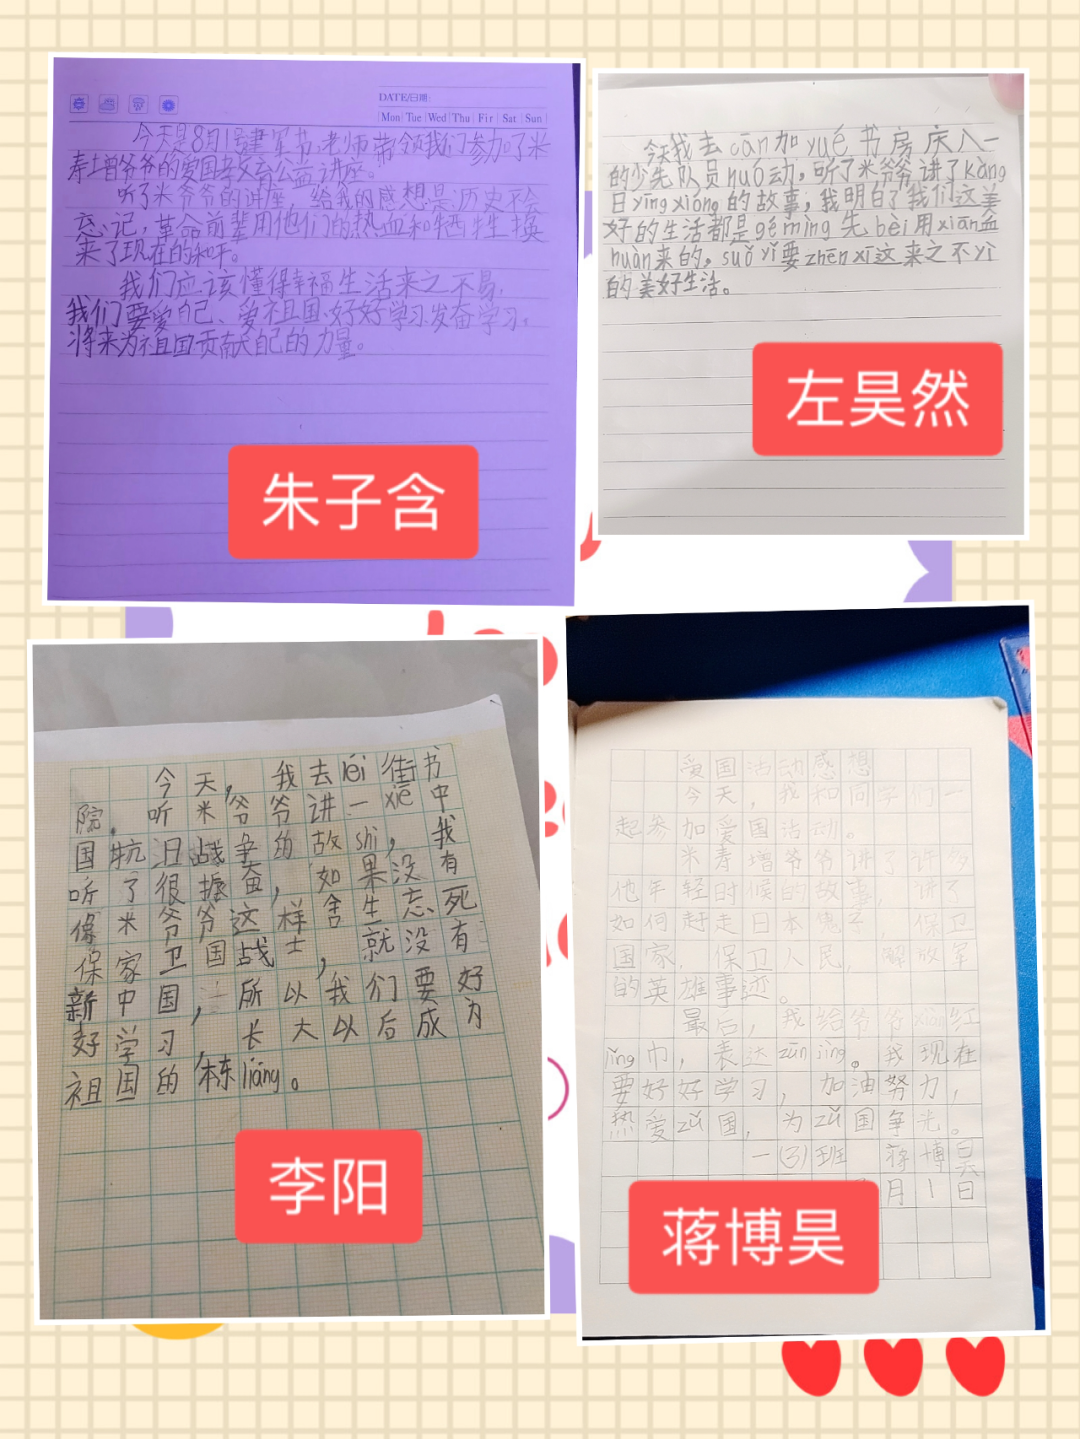 DATE/日期:
Mon Tue Wed Thu Fir Sat Sun
今天是8月1号建军节,老师带领我们参加了米
寿增爷爷的爱国教育公益讲座。
听了米爷爷的讲座,给我的感想是:历史不会
忘记,革命前辈用他们的热血和牺牲换
来了现在的和平。
我们应该懂得幸福生活来之不易,
我们要爱自己、爱祖国、好好学习,发奋学习,
将来为祖国贡献自己的力量。
朱子含
今天我去cān加yué书房庆八一
的少先队员huó动,听了米爷爷讲了kàng
日yīng xióng的故事,我明白了我们这美
好的生活都是gé mìng先bèi用xiān血
huàn来的。suǒ yǐ要zhēn xī这来之不yì
的美好生活。
左昊然
今天,我去léi街书
院,听米爷爷讲一xiē中
国抗日战争的故shi,我
听了很振奋,如果没有
像米爷爷这样舍生忘死
保家卫国战士,就没有
新中国,所以我们要好
好学习,长大以后成为
祖国的栋liáng。
李阳
爱国活动感想
今天,我和同学们一
起参加爱国活动。
米寿增爷爷讲了许多
他年轻时候的故事,讲了
如何赶走日本鬼子 保卫
国家,保卫人民,解放军
的英雄事迹。
最后,我给爷爷xiàn红
lǐng巾,表达zūn jìng。我现在
要好好学习,加油努力,
热爱zǔ国,为zǔ国争光。
一(3)班 蒋博昊
月1日
蒋博昊